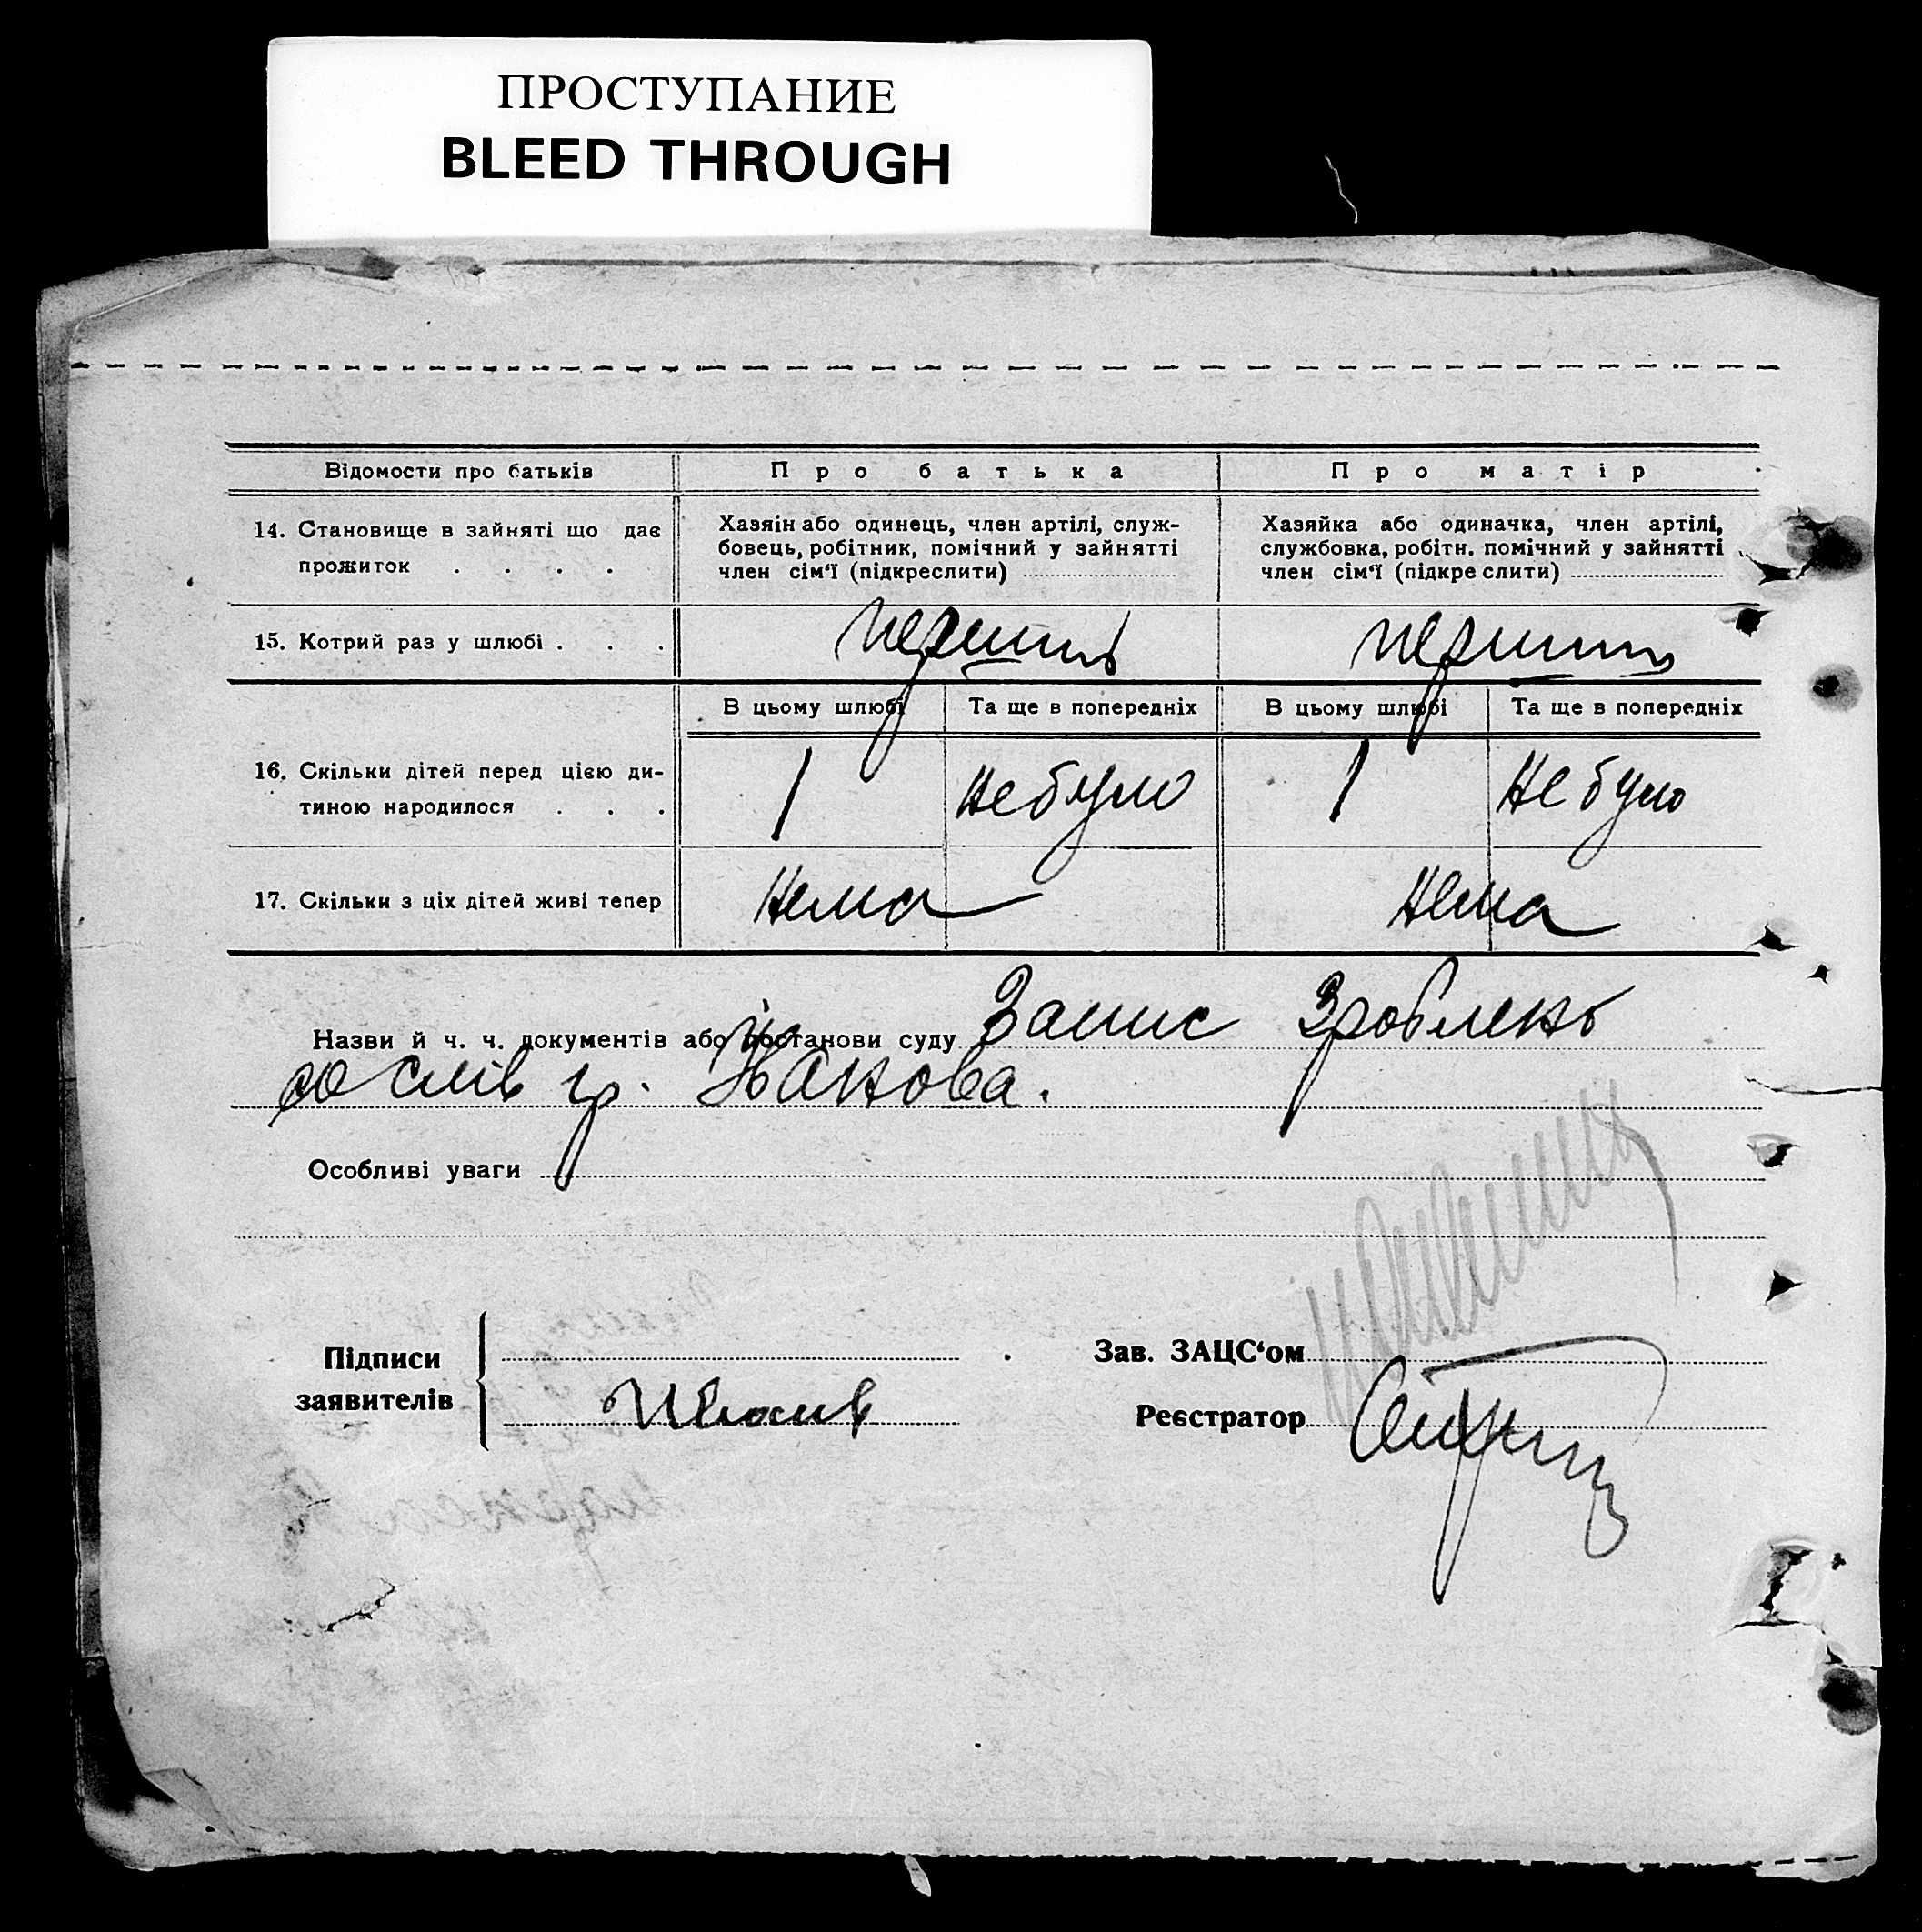 ПРОСТУПАНИЕ
BLEED THROUGH
Відомости про батьків
Про батька
Про матір
14. Становище в зайняті що дає
прожиток . . . .
Хазяїн або одинець, член артілі, служ-
бовець, робітник, помічний у зайнятті
член сім'ї (підкреслити)
Хазяйка або одиначка, член артілі,
службовка, робітн. помічний у зайнятті
член сім'ї (підкреслити)
15. Котрий раз у шлюбі . . .
перший
перший
В цьому шлюбі
Та ще в попередніх
В цьому шлюбі
Та ще в попередніх
16. Скільки дітей перед цією ди-
тиною народилося . . .
1
не було
1
не було
17. Скільки з ціх дітей живі тепер
нема
нема
Назви й ч. ч. документів або постанови суду Запис зроблено
со слів гр.
Особливі уваги
Підписи
заявителів
Зав. ЗАЦС'ом
Реєстратор